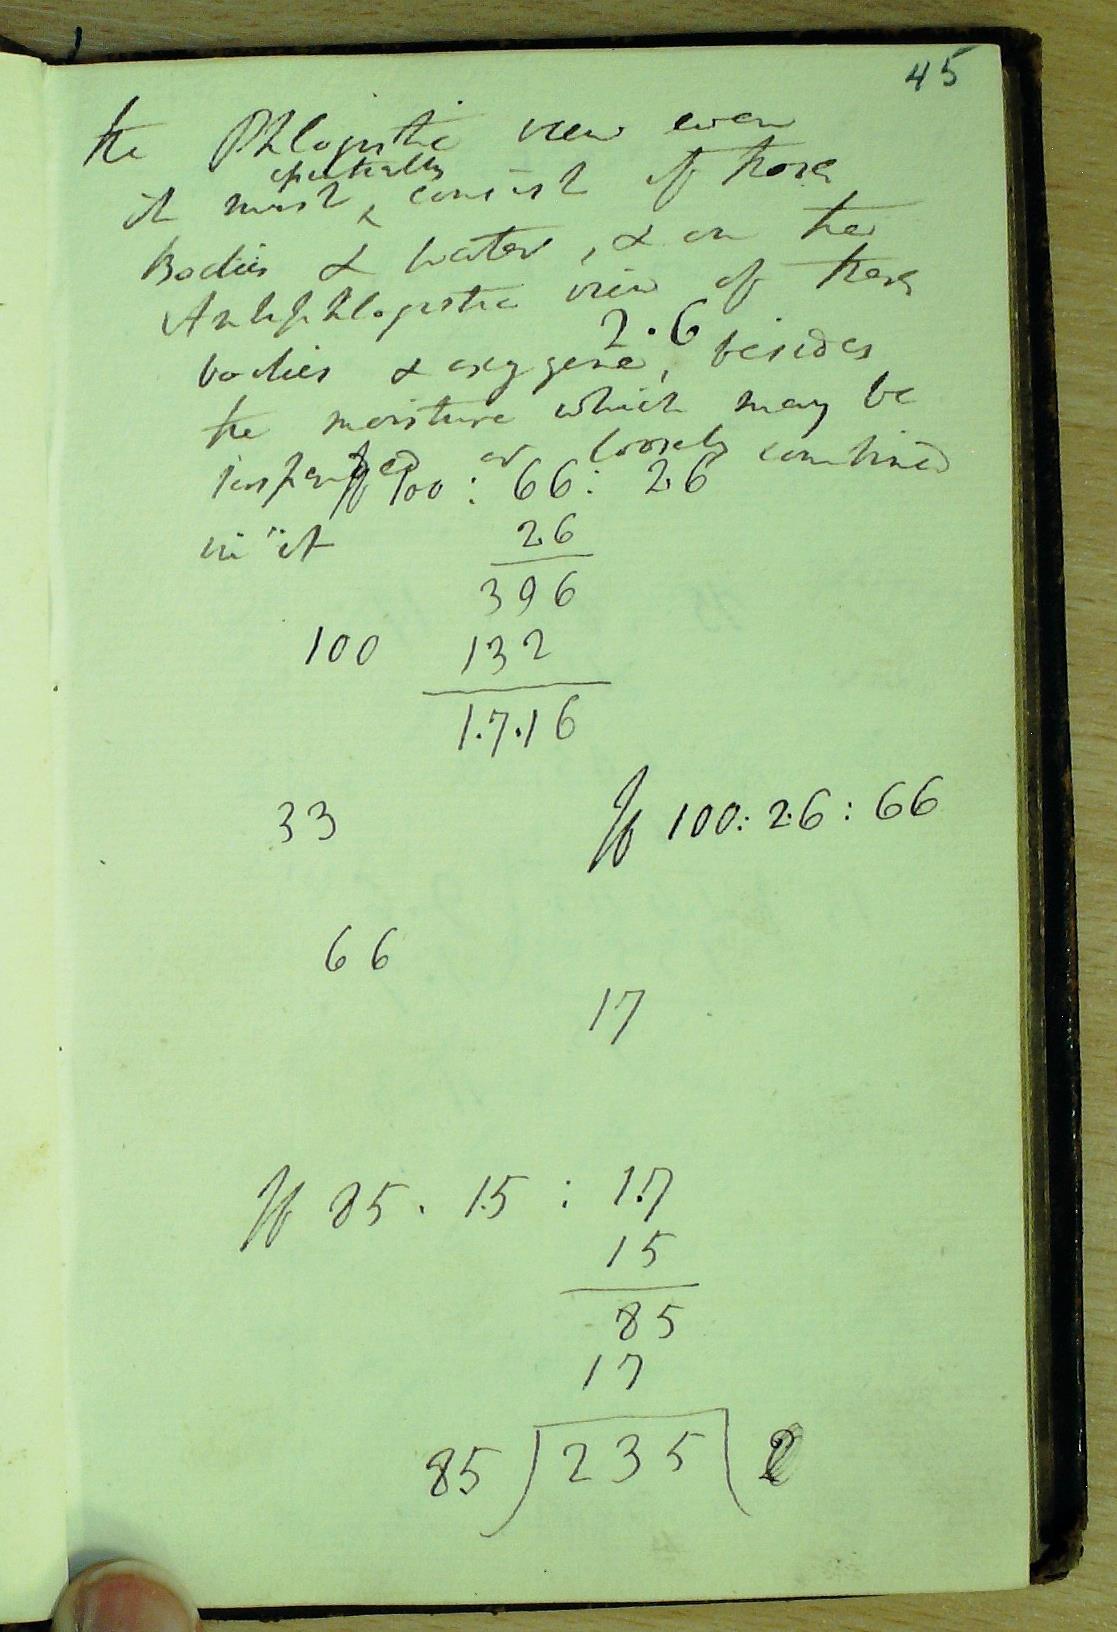 45
the Phlogistic view even
essentially
it must ^ consist of those
Bodies & water, & on the
Antiphlogistic view of these
2.6
bodies & oxygene, besides
the moisture which may be
suspended or loosely combined
100 : 66 : 26
in it
26
396
100 132
1.7.16
33
100: 2.6 : 66
66
17
85 . 15 : 1.7
15
85
17
85 ) 235 ( 2